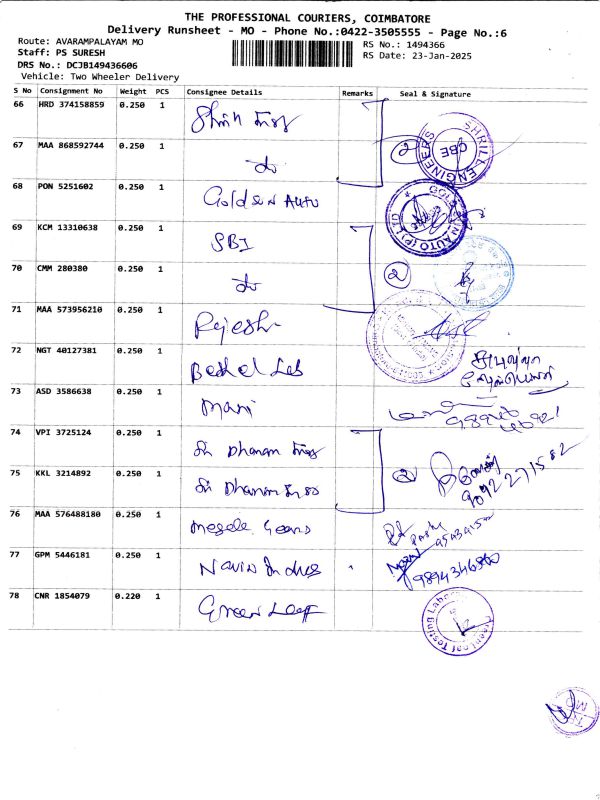 THE PROFESSIONAL COURIERS, COIMBATORE
Delivery Runsheet - MO - Phone No.:0422-3505555 - Page No.:6
Route: AVARAMPALAYAM MO
RS No.: 1494366
Staff: PS SURESH
RS Date: 23-Jan-2025
DRS No.: DCJB149436606
Vehicle: Two Wheeler Delivery
S No Consignment No Weight PCS Consignee Details Remarks Seal & Signature
66 HRD 374158859 0.250 1
67 MAA 868592744 0.250 1 2 SHRILL ENGINEERS CBE
68 PON 5251602 0.250 1 Golden Auto
69 KCM 13310638 0.250 1 SBI
70 CMM 280380 0.250 1 2
71 MAA 573956210 0.250 1 Rajesh
72 NGT 40127381 0.250 1 Bethel Lab
73 ASD 3586638 0.250 1 Mani
74 VPI 3725124 0.250 1 Sri Dhanam
75 KKL 3214892 0.250 1 Sri Dhanam 2
76 MAA 576488180 0.250 1 Gears
77 GPM 5446181 0.250 1 Navin Indus 9894346860
78 CNR 1854079 0.220 1 Green Leaf GreenLeaf Testing Labor